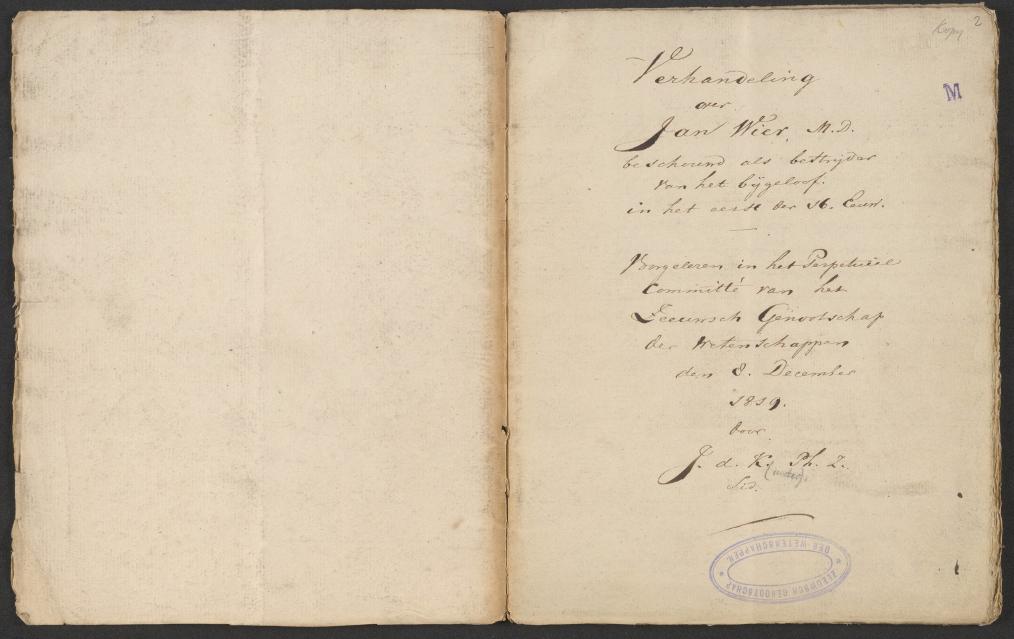 Kopy 2
M
Verhandeling
over
Jan Wier, M.D.
beschouwd als bestrijder
van het bijgeloof.
in het eerst der 16. Eeuw.
Voorgelezen in het Perpetueel
Committé van het
Zeeuwsch Genootschap
der Wetenschappen
den 8. December
1819.
door
J. d. K. Ph. Z.
Lid.
ZEEUWSCH GENOOTSCHAP
DER WETENSCHAPPEN